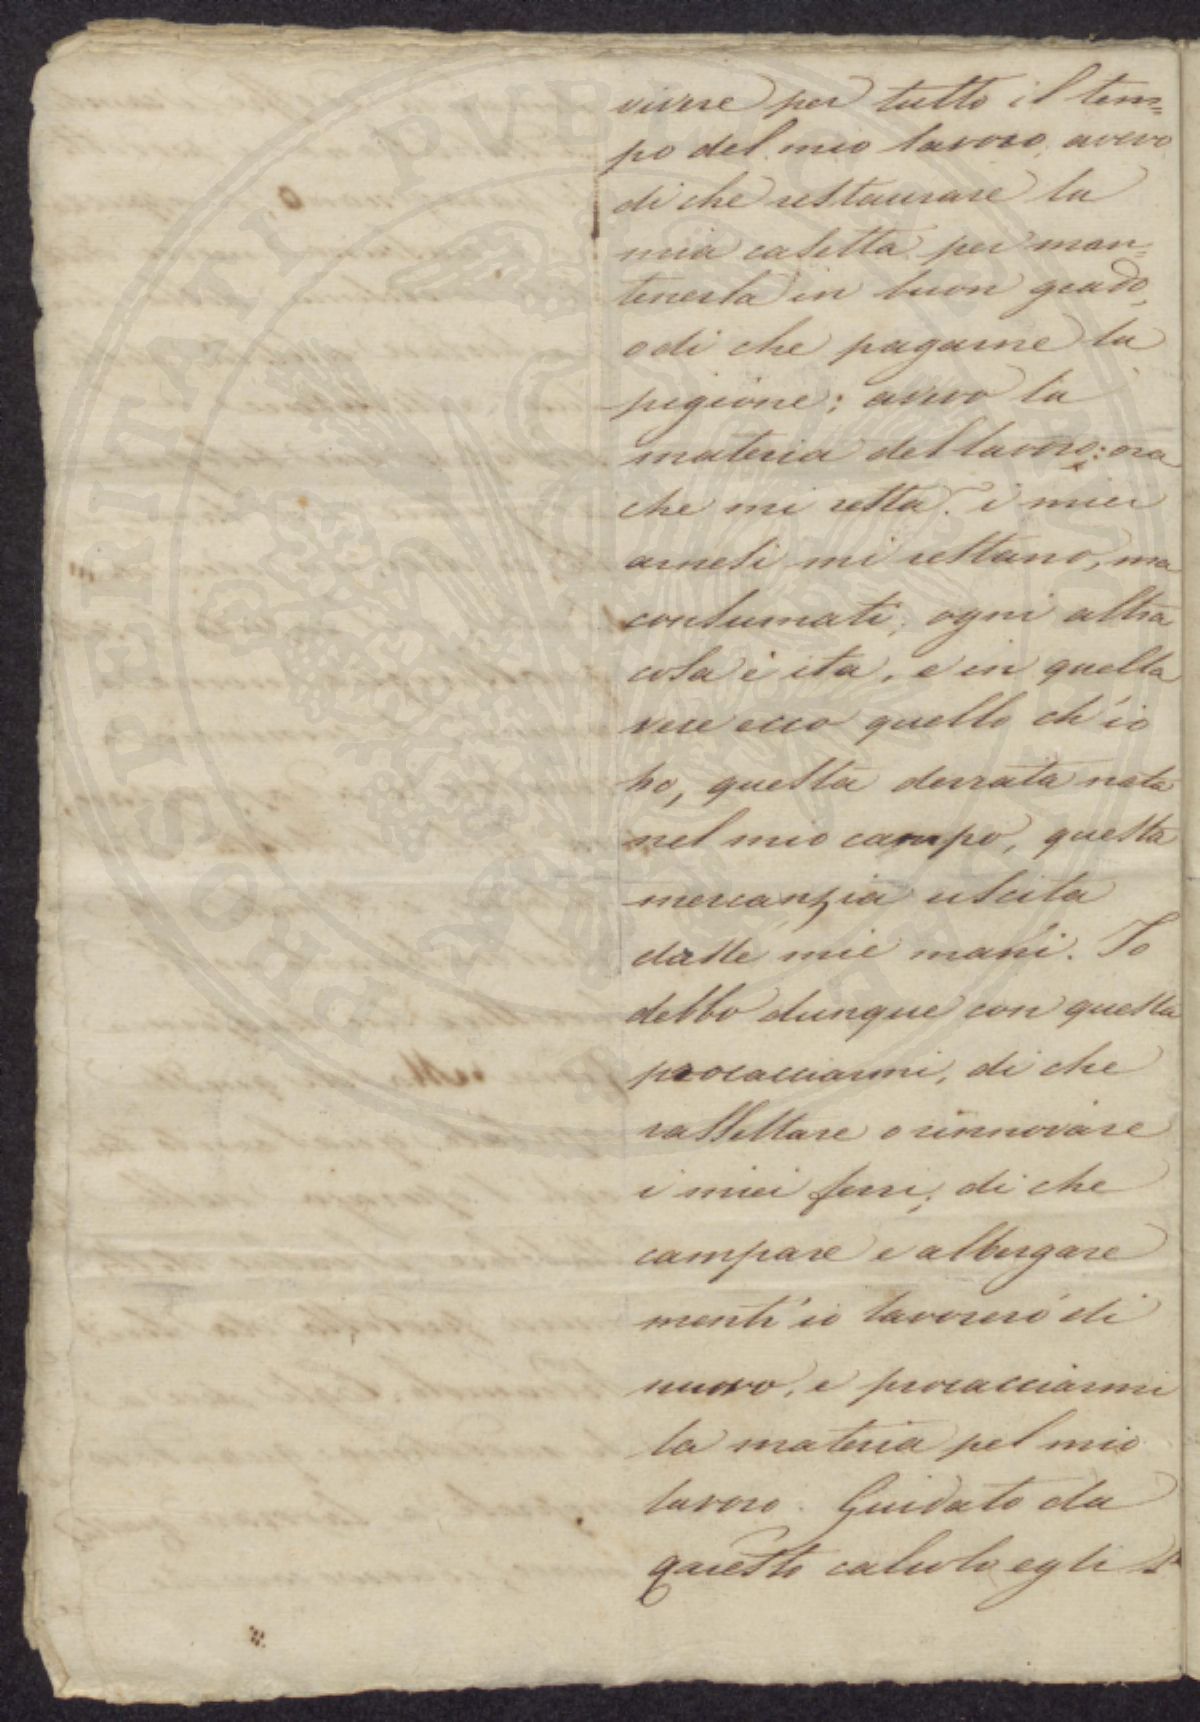 vivere per tutto il tem=
po del mio lavoro, avevo
di che restaurare la
mia casetta per man=
tenerla in buon grado,
o di che pagarne la
pigione; avevo la
materia del lavoro: ora
che mi resta? i miei
arnesi mi restano, ma
consumati; ogni altra
cosa è ita, e in quella
vece ecco quello ch'io
ho, questa derrata nata
nel mio campo, questa
mercanzia uscita
dalle mie mani. Io
debbo dunque con questa
procacciarmi, di che
rassettare o rinnovare
i miei ferri, di che
campare e albergare
mentr'io lavorerò di
nuovo, e procacciarmi
la materia pel mio
lavoro. Guidato da
questo calcolo egli
PROSPERITATI PVBLICAE